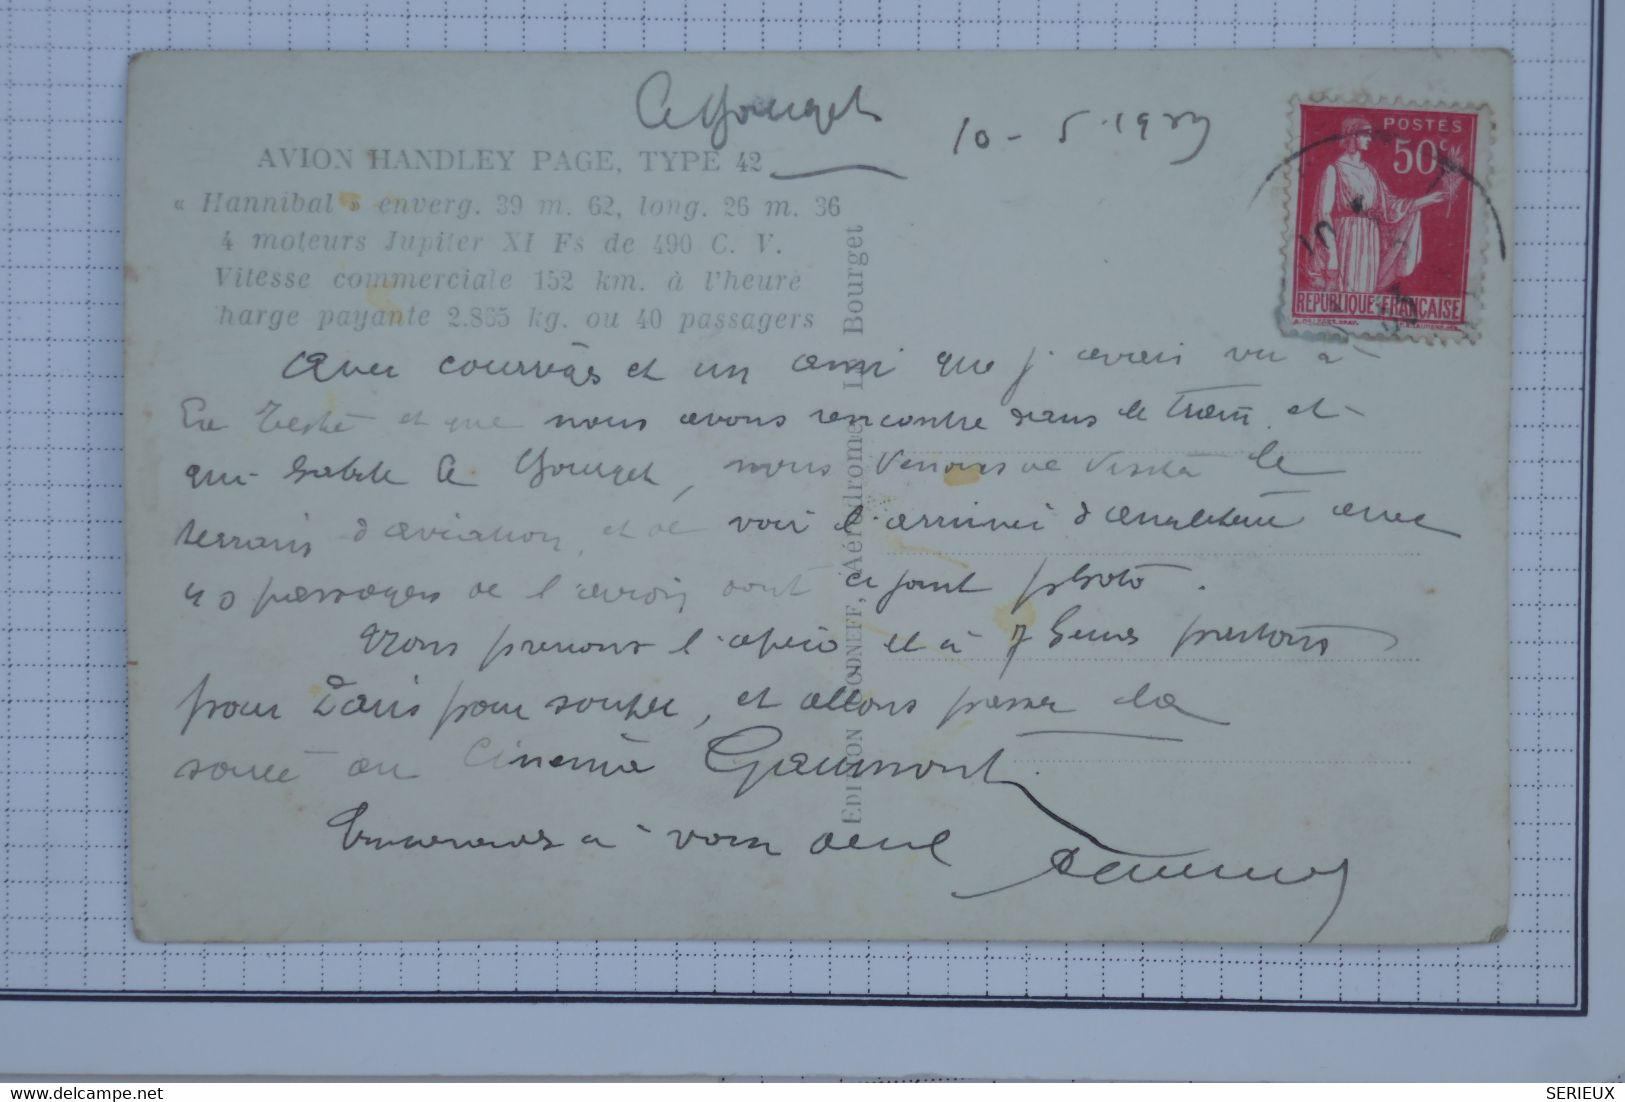 Le Bourget 10-5-1933
AVION HANDLEY PAGE, TYPE 42
« Hannibal » enverg. 39 m. 62, long. 26 m. 36
4 moteurs Jupiter XI Fs de 490 C. V.
Vitesse commerciale 152 km. à l'heure
harge payante 2.865 kg. ou 40 passagers
POSTES
50c
REPUBLIQUE FRANÇAISE
EDITION GODNEFF, Aérodrome Le Bourget
Avec et un ami que j'avais vu à
La Teste et que nous avons rencontré dans le train et
qui habite Le Bourget, nous venons de visiter le
terrain d'aviation, et de voir l'arrivée d'angleterre avec
40 passagers de l'avion dont ci joint photo.
Nous prenons l'apéro et à 7 heures partons
pour Paris pour souper, et allons passer la
soirée au Cinema Gaumont.
à vous deux
SERIEUX
delcampe.net